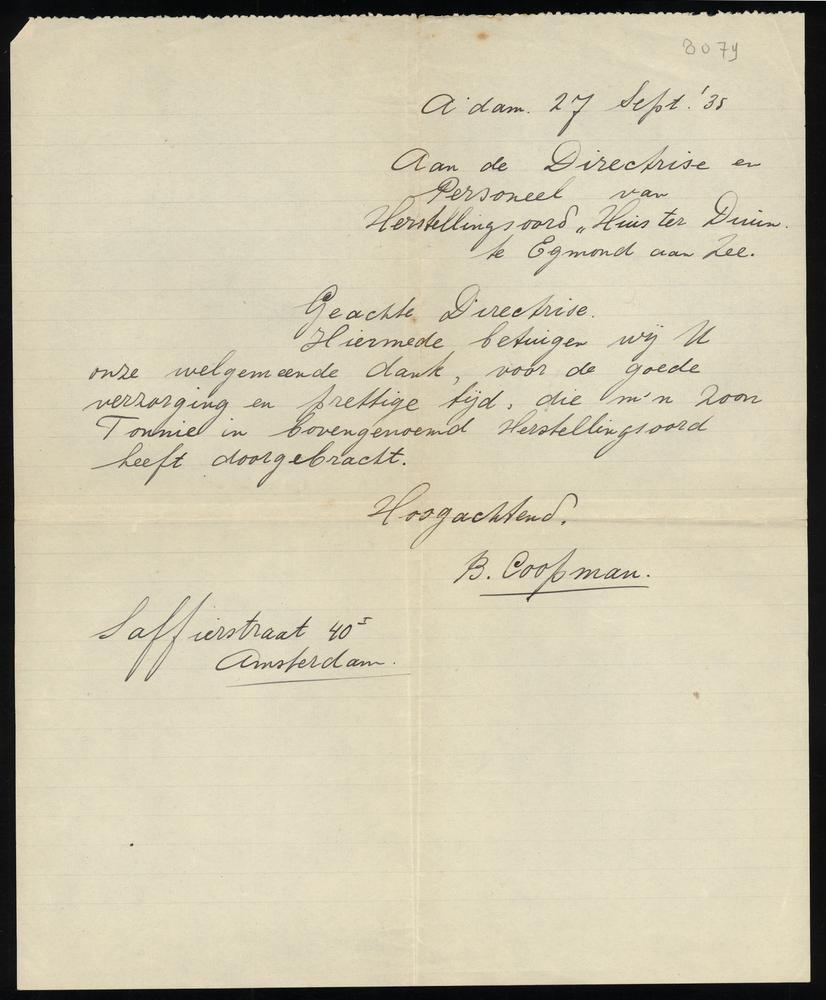 8079
A'dam. 27 Sept. '35
Aan de Directrise en
Personeel van
Herstellingsoord „Huis ter Duin.
te Egmond aan Zee.
Geachte Directrise.
Hiermede betuigen wij U
onze welgemeende dank, voor de goede
verzorging en prettige tijd, die m'n zoon
Tonnie in bovengenoemd Herstellingsoord
heeft doorgebracht.
Hoogachtend,
B. Coopman.
Saffierstraat 40 I
Amsterdam.